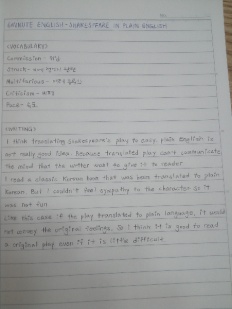 6MINUTE ENGLISH - SHAKESPEARE IN PLAIN ENGLISH
VOCABULARY
Commission -
Multifarious -
Criticism - 비평
Pace - 속도
WRITING
I think translating Shakespeare's play to easy, plain English is
not really good idea. Because translated play can't communicate
the mind that the writer want to give to reader.
I read a classic Korean book that was been translated to plain
Korean But I couldn't feel sympathy to the character so it
was not fun
Like this case if the play translated to plain language, it would
not convey the original feelings. So I think it is good to read
a original play even if it is little difficult